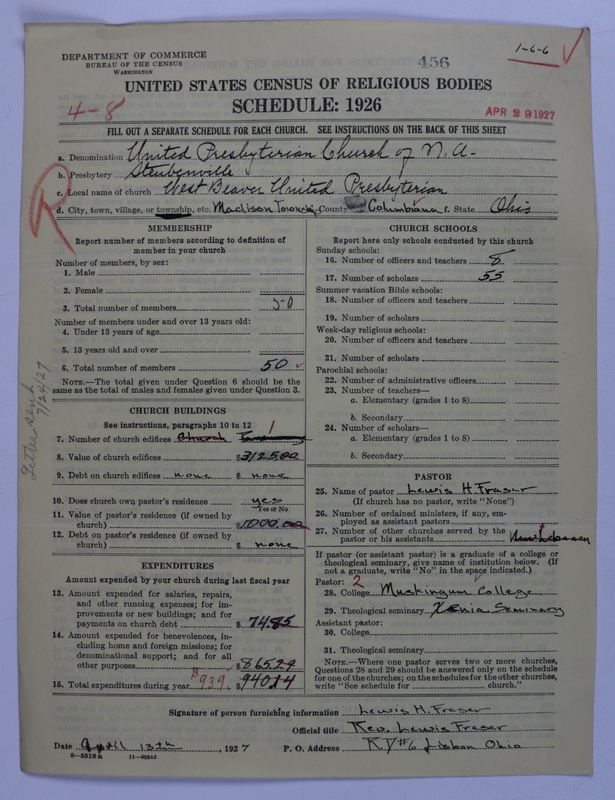 1-6-6
DEPARTMENT OF COMMERCE
BUREAU OF THE CENSUS
WASHINGTON
456
UNITED STATES CENSUS OF RELIGIOUS BODIES
4-8
SCHEDULE: 1926
APR 29 1927
FILL OUT A SEPARATE SCHEDULE FOR EACH CHURCH. SEE INSTRUCTIONS ON THE BACK OF THIS SHEET
a. Denomination United Presbyterian Church of N. A.
b. Presbytery Steubenville
c. Local name of church West Beaver United Presbyterian
d. City, town, village, or township, etc. Madison Township County Columbiana f. State Ohio
R
MEMBERSHIP
Report number of members according to definition of
member in your church
Number of members, by sex:
1. Male
2. Female
3. Total number of members 50
Number of members under and over 13 years old:
4. Under 13 years of age
5. 13 years old and over
6. Total number of members 50
NOTE.—The total given under Question 6 should be the
same as the total of males and females given under Question 3.
Letter sent
7/24/27
CHURCH BUILDINGS
See instructions, paragraphs 10 to 12
7. Number of church edifices Church 1
8. Value of church edifices $3125.00
9. Debt on church edifices none $ none
10. Does church own pastor's residence yes
Yes or No
11. Value of pastor's residence (if owned by
church) $1000.00
12. Debt on pastor's residence (if owned by
church) $ none
EXPENDITURES
Amount expended by your church during last fiscal year
13. Amount expended for salaries, repairs,
and other running expenses; for im-
provements or new buildings; and for
payments on church debt $ 74.85
14. Amount expended for benevolences, in-
cluding home and foreign missions; for
denominational support; and for all
other purposes $865.29
15. Total expenditures during year $939 $940.14
CHURCH SCHOOLS
Report here only schools conducted by this church
Sunday schools:
16. Number of officers and teachers 8
17. Number of scholars 55
Summer vacation Bible schools:
18. Number of officers and teachers
19. Number of scholars
Week-day religious schools:
20. Number of officers and teachers
21. Number of scholars
Parochial schools:
22. Number of administrative officers
23. Number of teachers—
a. Elementary (grades 1 to 8)
b. Secondary
24. Number of scholars—
a. Elementary (grades 1 to 8)
b. Secondary
PASTOR
25. Name of pastor Lewis H Fraser
(If church has no pastor, write "None")
26. Number of ordained ministers, if any, em-
ployed as assistant pastors
27. Number of other churches served by the
pastor or his assistants 1 New Lebanon
If pastor (or assistant pastor) is a graduate of a college or
theological seminary, give name of institution below. (If
not a graduate, write "No" in the space indicated.)
Pastor: 2
28. College Muskingum College
29. Theological seminary Xenia Seminary
Assistant pastor:
30. College
31. Theological seminary
NOTE.—Where one pastor serves two or more churches,
Questions 28 and 29 should be answered only on the schedule
for one of the churches; on the schedules for the other churches,
write "See schedule for church."
Signature of person furnishing information Lewis H. Fraser
Official title Rev. Lewis Fraser
Date April 13th, 1927 P. O. Address R D #6 Lisbon Ohio
8-5518 a